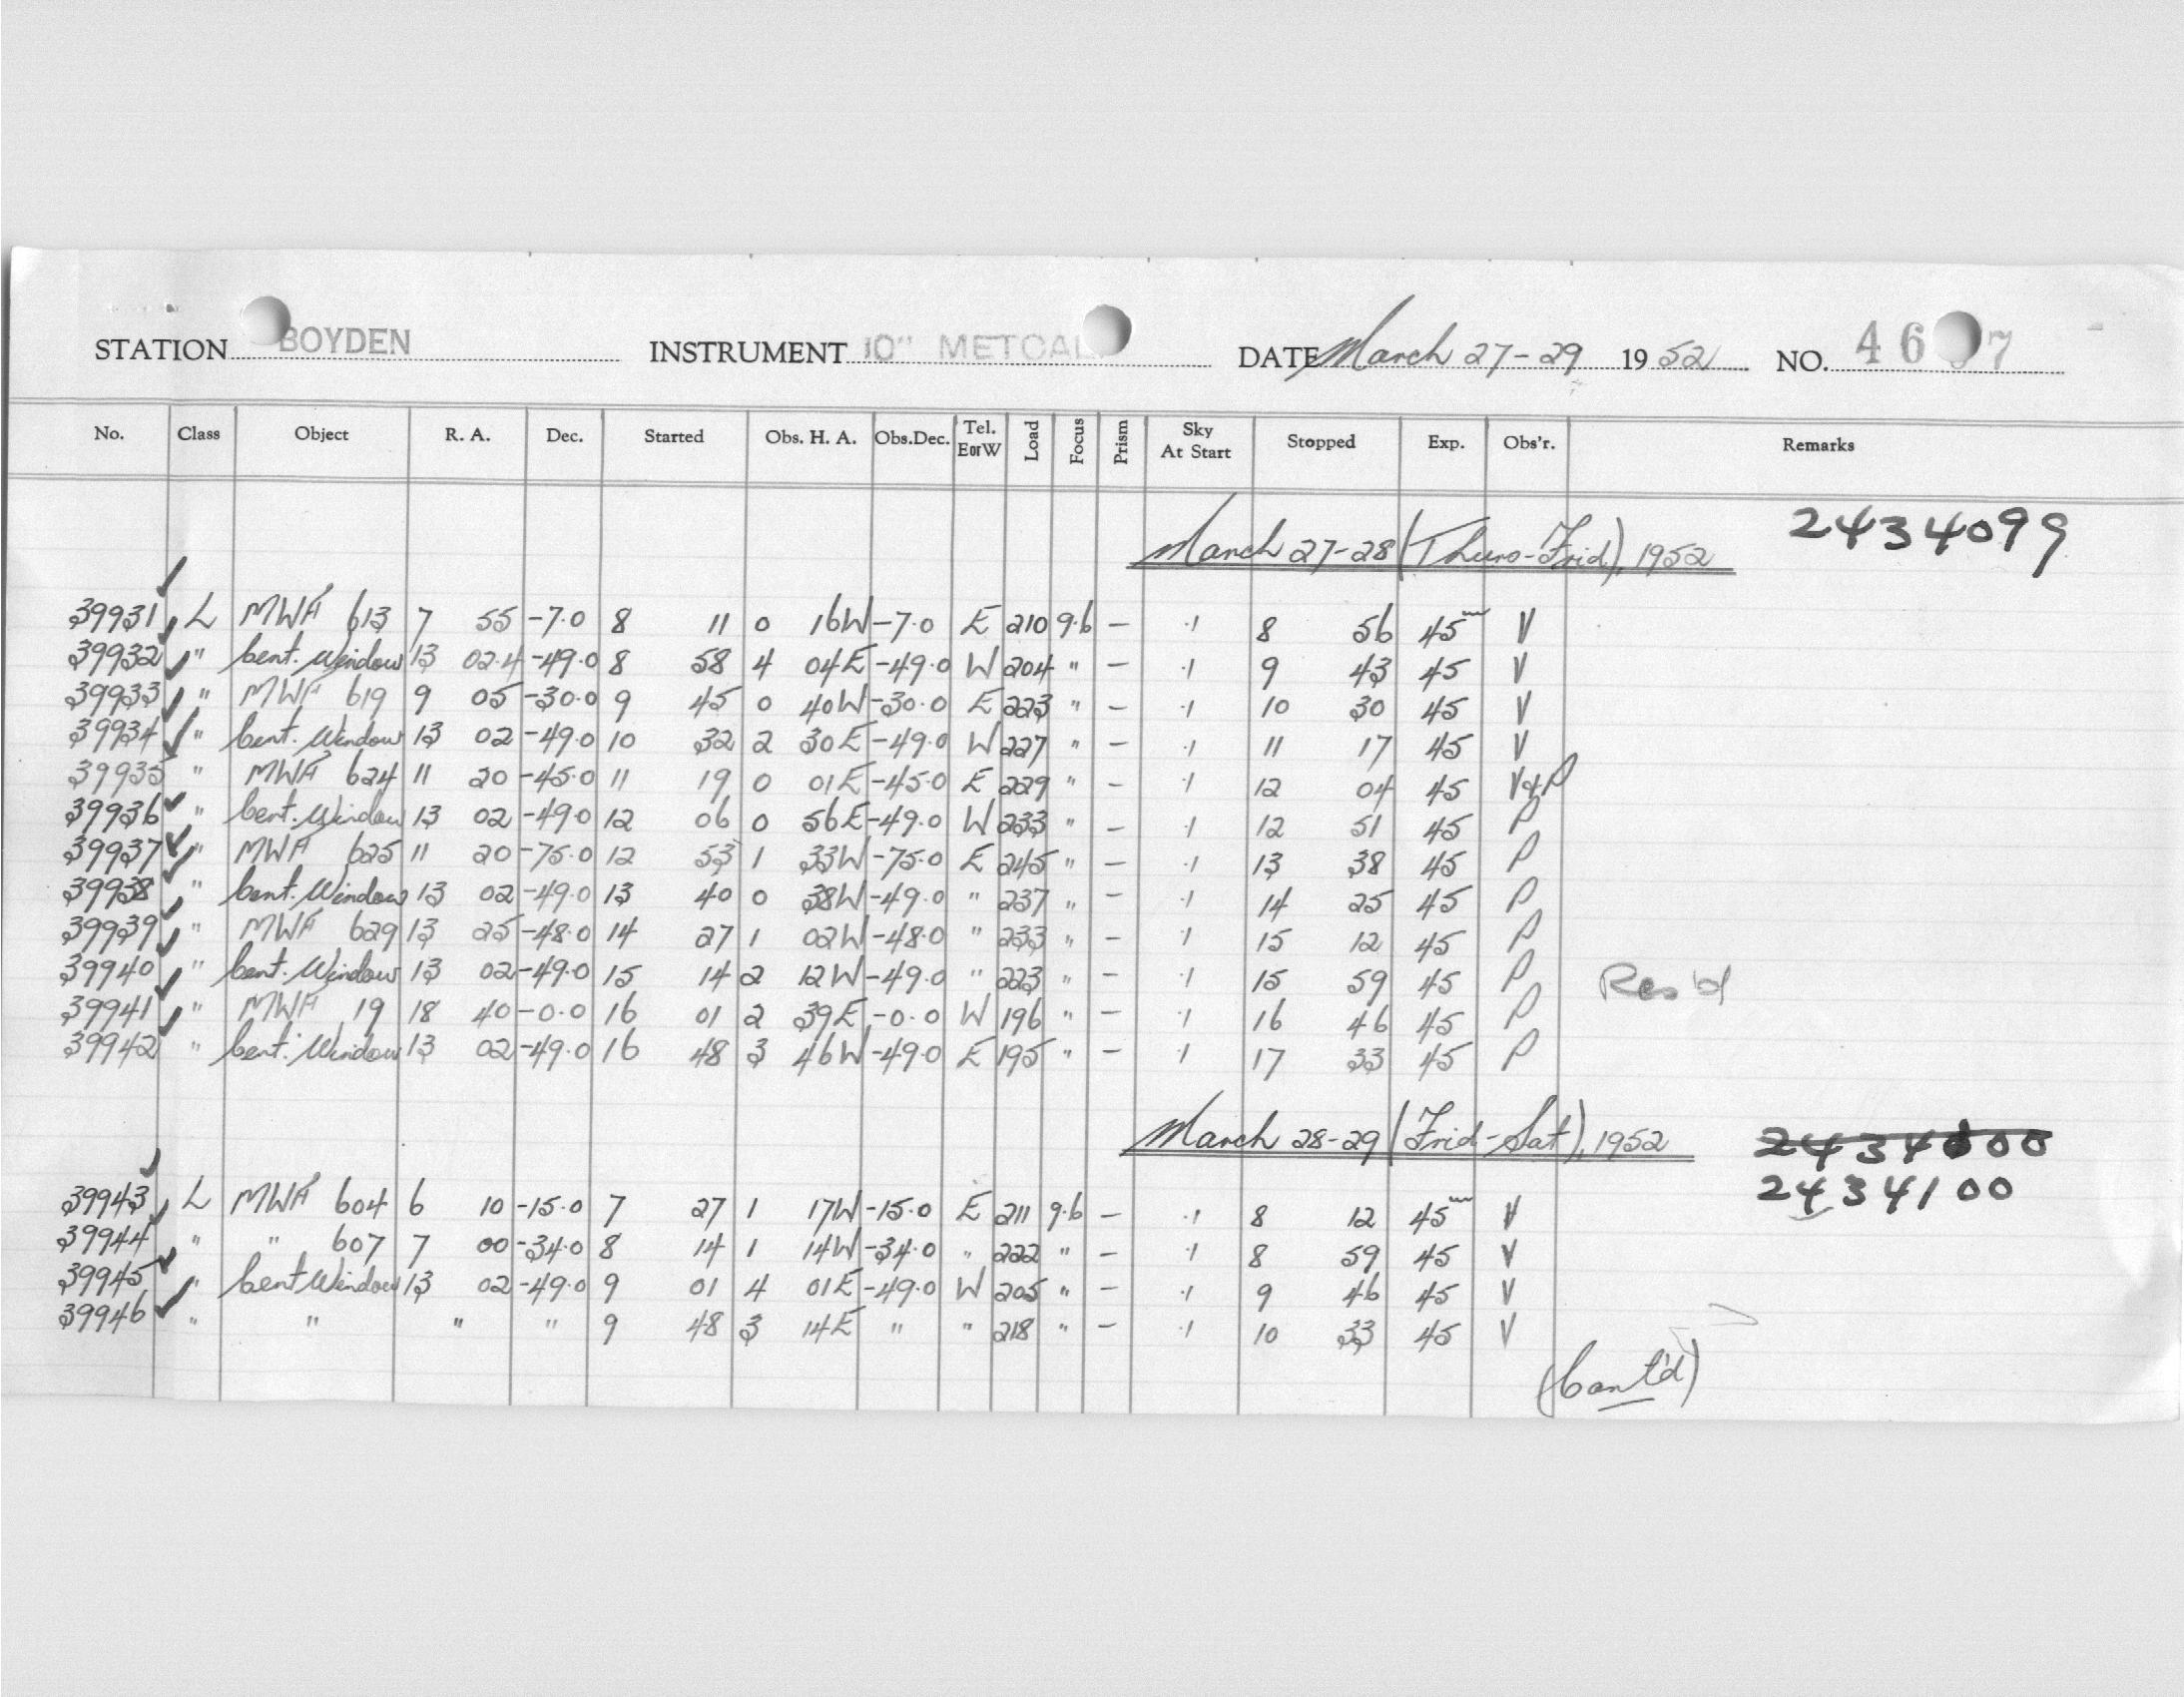 STATION BOYDEN INSTRUMENT 10" METCAL DATE March 27-29 1952 NO. 46 7
No. Class Object R. A. Dec. Started Obs. H. A. Obs.Dec. Tel. EorW Load Focus Prism Sky At Start Stopped Exp. Obs'r. Remarks
March 27-28 (Thurs-Frid), 1952 2434099
39931 L MWF 613 7 55 -7.0 8 11 0 16W -7.0 E 210 9.6 - .1 8 56 45m V
39932 " Cent. Window 13 02.4 -49.0 8 58 4 04E -49.0 W 204 " - .1 9 43 45 V
39933 " MWF 619 9 05 -30.0 9 45 0 40W -30.0 E 223 " - .1 10 30 45 V
39934 " Cent. Window 13 02 -49.0 10 32 2 30E -49.0 W 227 " - .1 11 17 45 V
39935 " MWF 624 11 20 -45.0 11 19 0 01E -45.0 E 229 " - .1 12 04 45 V&P
39936 " Cent. Window 13 02 -49.0 12 06 0 56E -49.0 W 233 " - .1 12 51 45 P
39937 " MWF 625 11 20 -75.0 12 53 1 33W -75.0 E 245 " - .1 13 38 45 P
39938 " Cent. Window 13 02 -49.0 13 40 0 38W -49.0 " 237 " - .1 14 25 45 P
39939 " MWF 629 13 25 -48.0 14 27 1 02W -48.0 " 233 " - .1 15 12 45 P
39940 " Cent. Window 13 02 -49.0 15 14 2 12W -49.0 " 223 " - .1 15 59 45 P Res'd
39941 " MWF 19 18 40 -0.0 16 01 2 39E -0.0 W 196 " - .1 16 46 45 P
39942 " Cent. Window 13 02 -49.0 16 48 3 46W -49.0 E 195 " - .1 17 33 45 P
March 28-29 (Frid-Sat), 1952
2434100
39943 L MWF 604 6 10 -15.0 7 27 1 17W -15.0 E 211 9.6 - .1 8 12 45m V
39944 " " 607 7 00 -34.0 8 14 1 14W -34.0 " 222 " - .1 8 59 45 V
39945 " Cent Window 13 02 -49.0 9 01 4 01E -49.0 W 205 " - .1 9 46 45 V
39946 " " " " 9 48 3 14E " " 218 " - .1 10 33 45 V
(Cont'd)